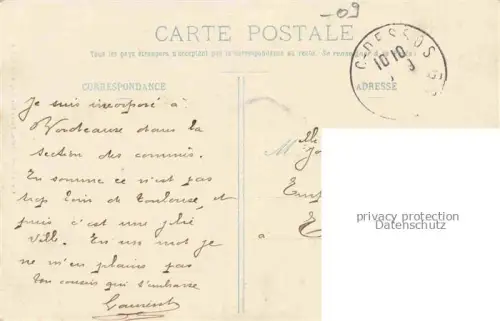 -09
CARTE POSTALE
Tous les pays étrangers n'acceptent pas la correspondance au recto. Se renseigner à la Poste
CORRESPONDANCE
ADRESSE
10 10
Je suis incorporé à
Bordeaux dans la
section des commis.
En somme ce n'est pas
trop loin de Toulouse, et
puis c'est une jolie
ville. En un mot je
ne m'en plains pas
Ton cousin qui t'embrasse
Laurent
Mlle
à
privacy protection
Datenschutz